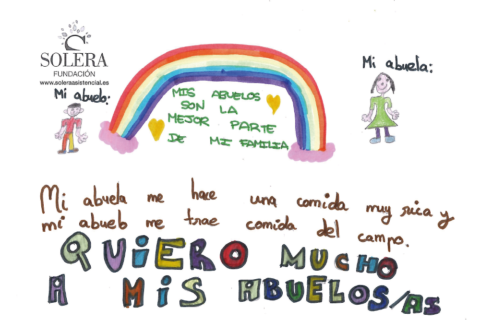 SOLERA
FUNDACIÓN
www.soleraasistencial.es
Mi abuelo:
Mi abuela:
MIS ABUELOS
SON LA
MEJOR PARTE
DE MI FAMILIA
Mi abuela me hace una comida muy rica y
mi abuelo me trae comida del campo.
QUiERO MUCHO
A MiS ABUELOS/AS